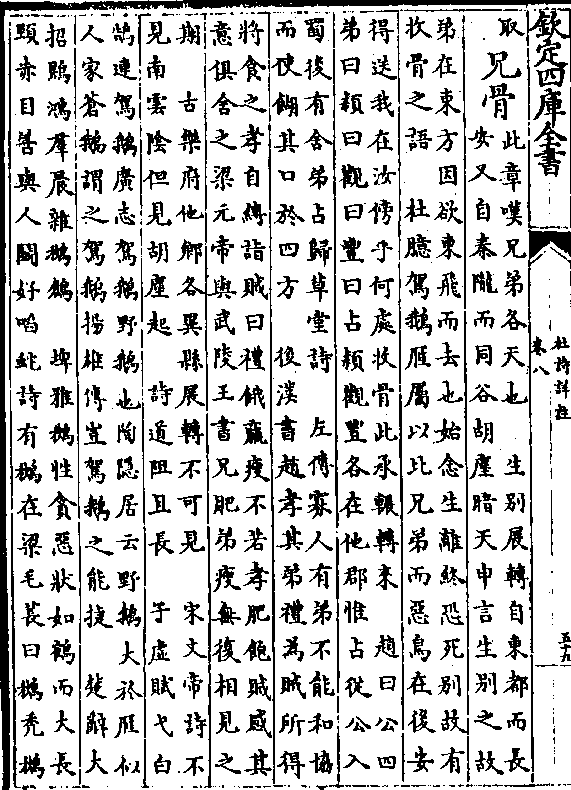 欽定四庫全書
杜詩詳註
卷八
五十九
取兄骨
此章嘆兄弟各天也　生別展轉自東都而長
安又自秦隴而同谷胡塵暗天申言生別之故
弟在東方因欲東飛而去也始念生離終恐死別故有
收骨之語　杜臆駕鵝雁屬以比兄弟而惡鳥在後安
得送我在汝傍乎何處收骨此承輾轉來　趙曰公四
弟曰穎曰觀曰豐曰占穎觀豐各在他郡惟占從公入
蜀後有舍弟占歸草堂詩　左傳寡人有弟不能和協
而使餬其口於四方　後漢書趙孝其弟禮為賊所得
將食之孝自縛詣賊曰禮餓羸瘦不若孝肥飽賊感其
意俱舍之梁元帝與武陵王書兄肥弟瘦無復相見之
期　古樂府他鄉各異縣展轉不可見　宋文帝詩不
見南雲陰但見胡塵起　詩道阻且長　子虛賦弋白
鵠連駕鵝廣志駕鵝野鵝也陶隱居云野鵝大於雁似
人家蒼鵝謂之駕鵝揚雄傳豈駕鵝之能捷　楚辭大
招鵾鴻羣晨雜鶖鶬　埤雅鶖性貪惡狀如鶴而大長
頸赤目善與人鬭好啗蛇詩有鶖在梁毛萇曰鶖禿鶖